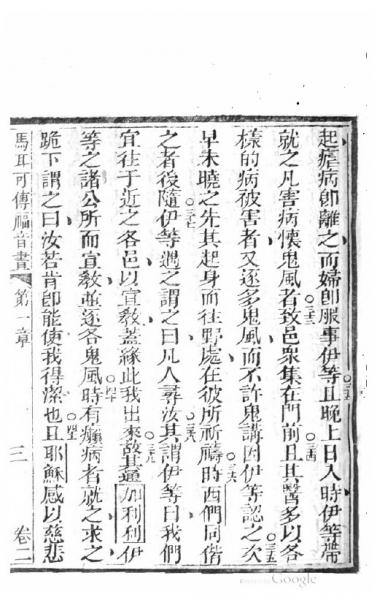 起瘧病卽離之而婦卽服事伊等且晚上日入時伊等帶
就之凡害病懷鬼風者致邑衆集在門前且其醫多以各
樣的病被害者又逐多鬼風而不許鬼講因伊等認之次
早未曉之先其起身而往野處在彼所祈禱時西們同偕
之者後隨伊等遇之謂之曰凡人尋汝其謂伊等曰我們
宜往于近之各邑以宣敎蓋緣此我出來故其遍加利利伊
等之諸公所而宣敎並逐各鬼風時有癩病者就之求之
跪下謂之曰汝若肯卽能使我得潔也且耶穌感以慈悲
馬耳可傳福音書 第一章 三 卷二
Google